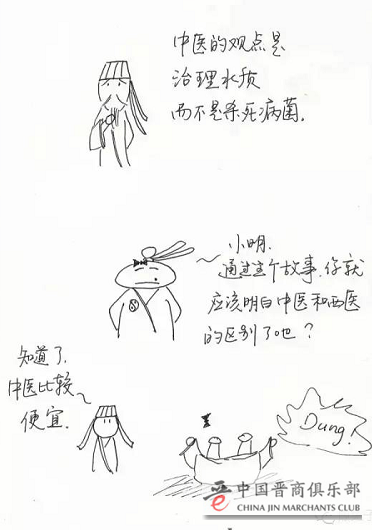 中医的观点是
治理水质
而不是杀死病菌.
小明.
通过这个故事.你就
应该明白中医和西医
的区别了吧?
知道了.
中医比较
便宜.
Dung!
中国晋商俱乐部
CHINA JIN MARCHANTS CLUB